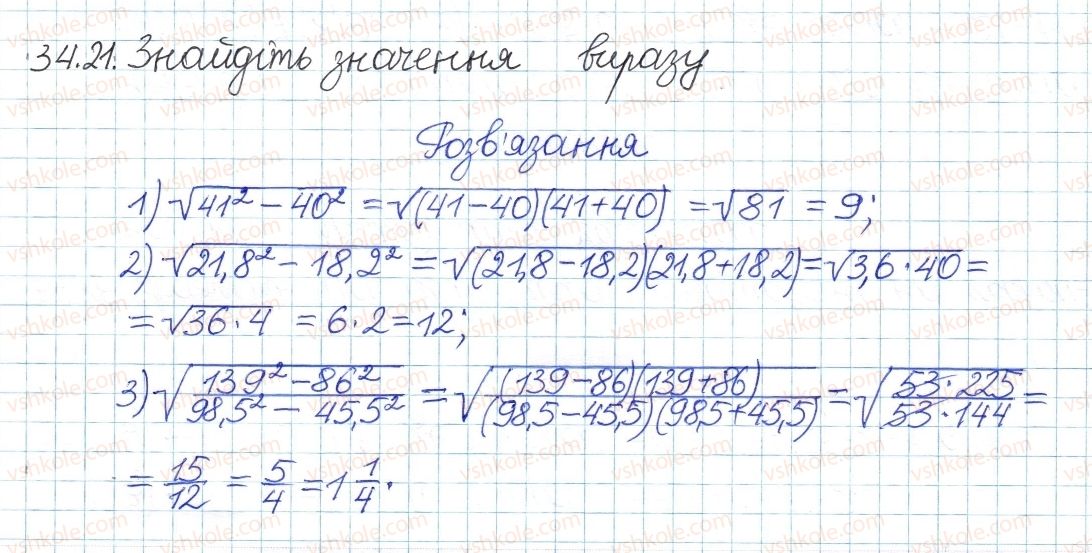 34.21. Знайдіть значення виразу
Розв'язання
1) √(41² − 40²) = √((41−40)(41+40)) = √81 = 9;
2) √(21,8² − 18,2²) = √((21,8−18,2)(21,8+18,2)) = √(3,6·40) =
= √(36·4) = 6·2 = 12;
3) √((139² − 86²)/(98,5² − 45,5²)) = √(((139−86)(139+86))/((98,5−45,5)(98,5+45,5))) = √((53·225)/(53·144)) =
= 15/12 = 5/4 = 1 1/4.